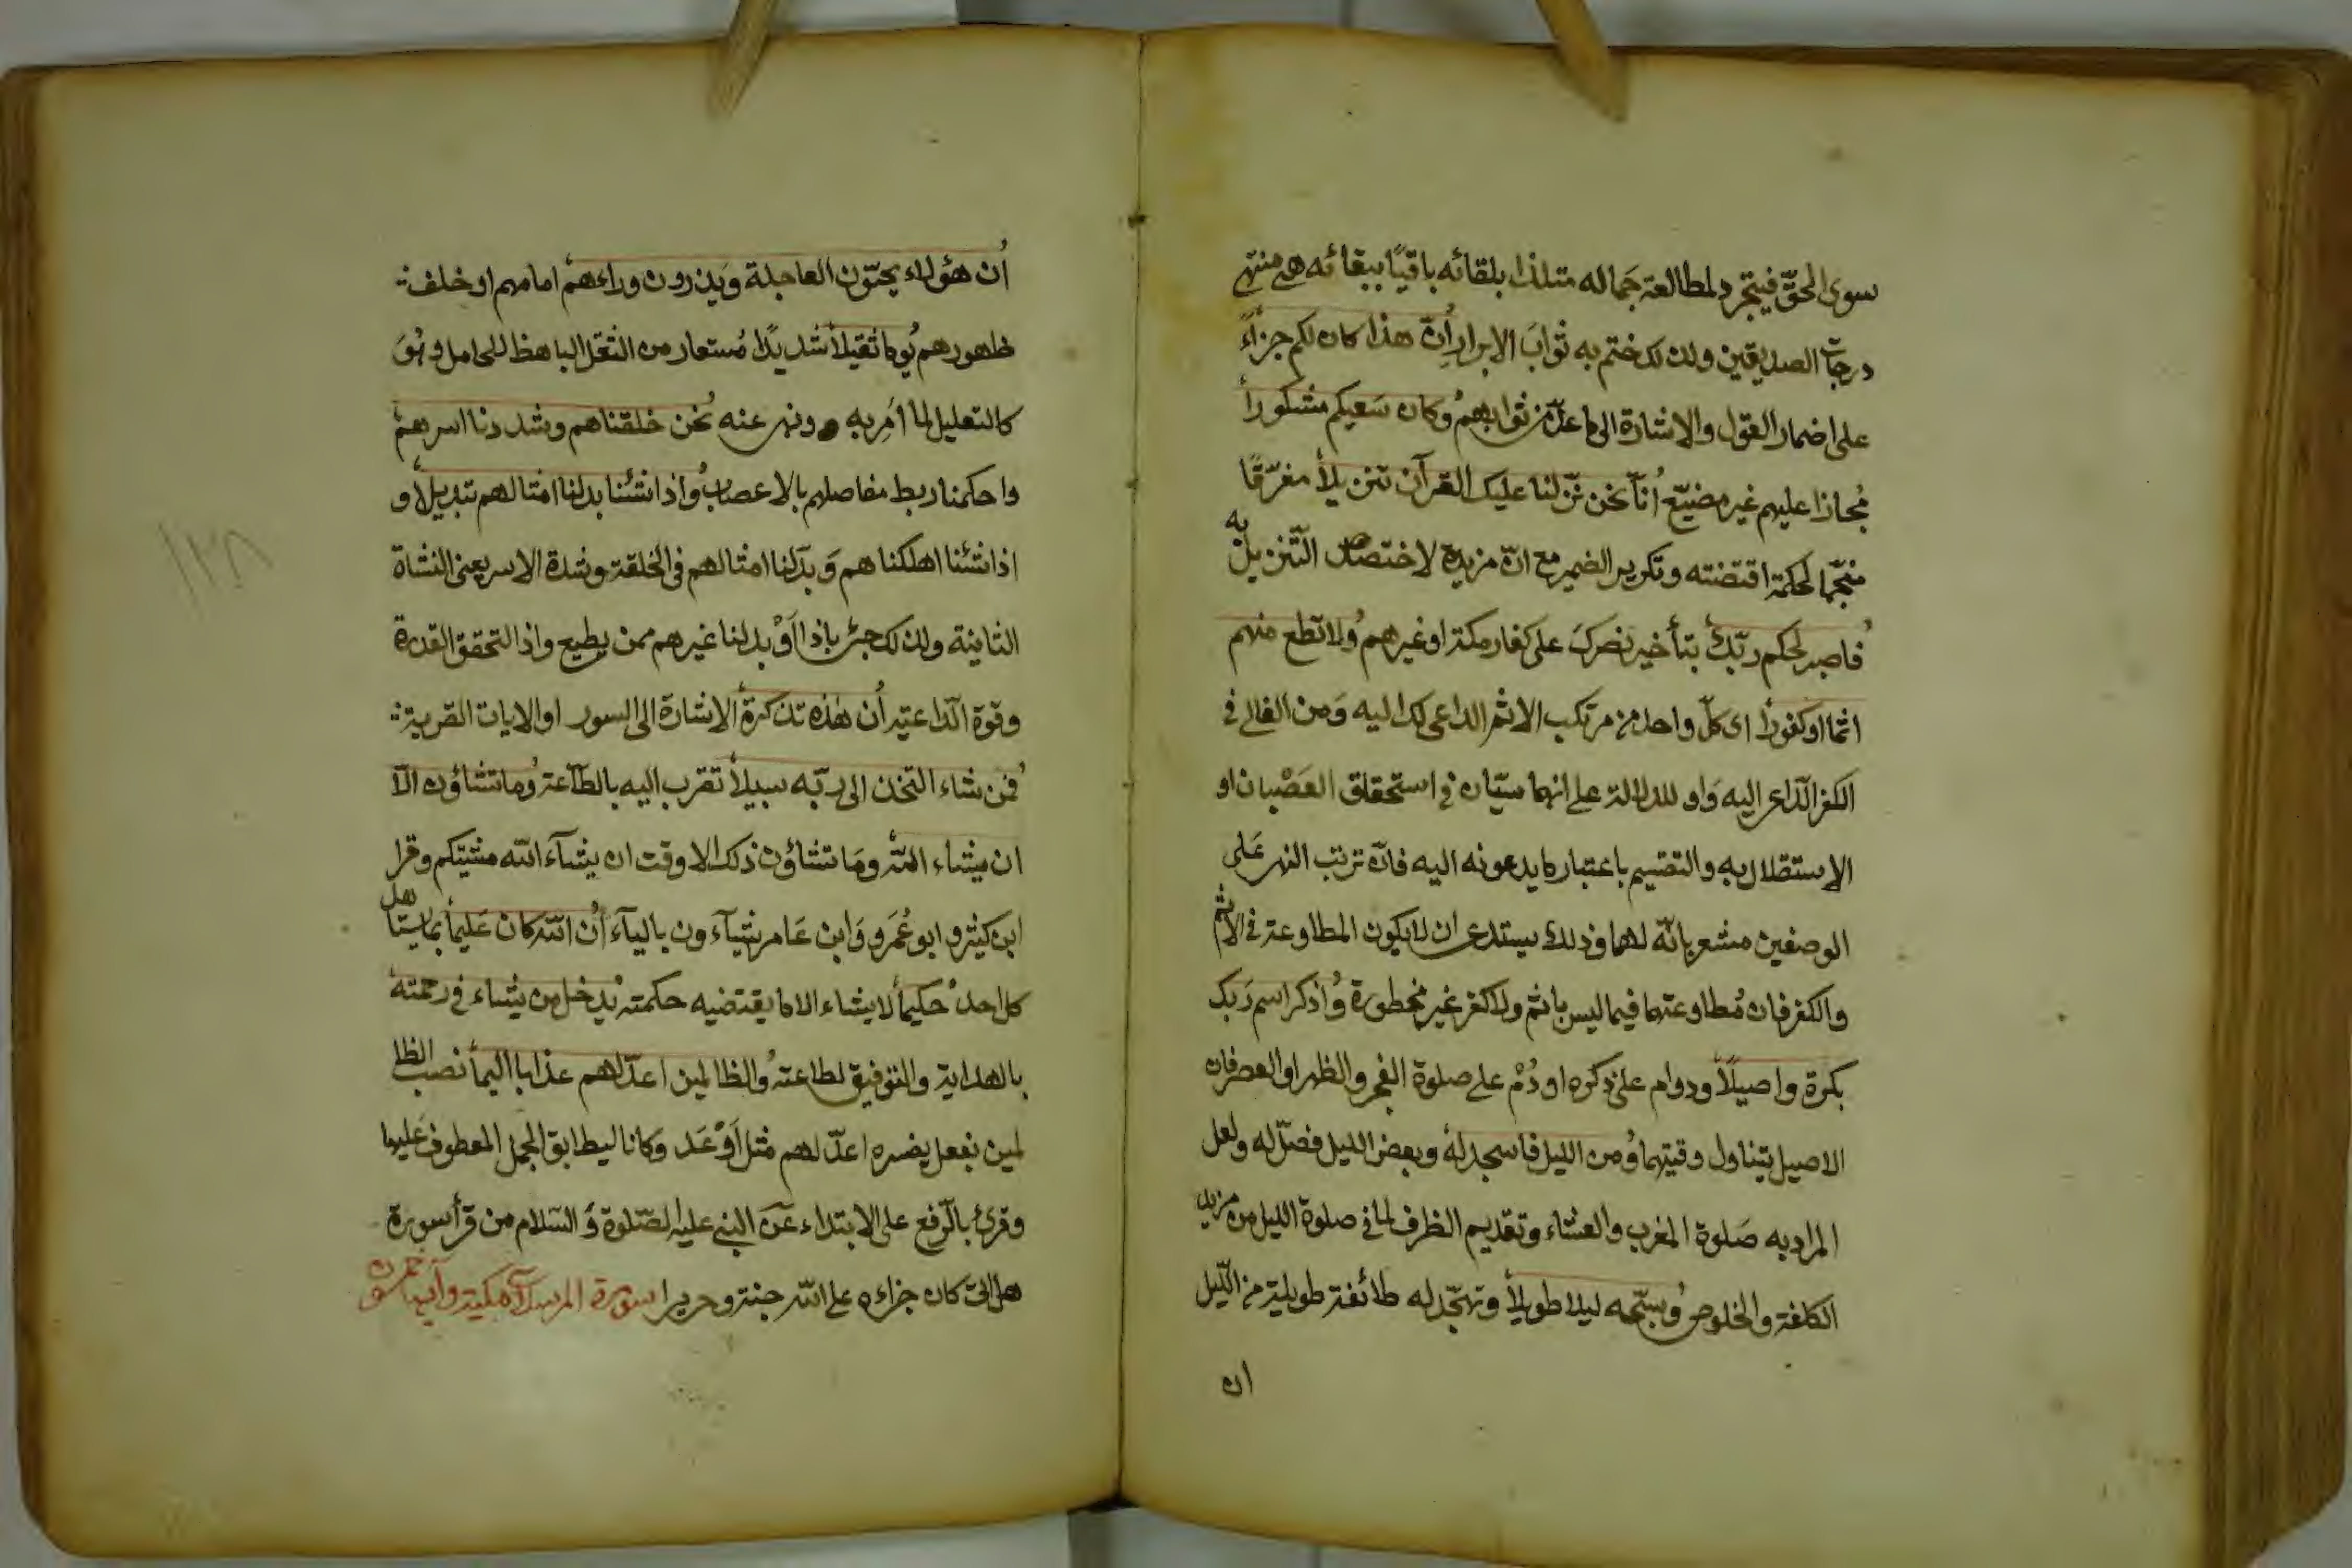 سوى الحقّ فيتجرد لمطالعة جماله متلذذا بلقائه باقيًا ببقائه هى منتهى
درجات الصديقين ولذلك ختم به ثوابَ الابرارِ أنّ هذا كان لكم جزاءً
على اضمار القول والاشارة الى ما عدّ من ثوابهم وكان سَعيكم مشكوراً
مُجازا عليهم غير مضيّع أنّا نحن نزّلنا عليك القرآن تنزيلاً مفرّقًا
منجّما لحكمة اقتضته وتكرير الضمير مع انّ مزيدة لاختصاص التّنزيل به
فاصبر لحكم ربّك بتأخير نصركَ على كفار مكة او غيرهم ولا تطع منهم
اثما او كفوراً اى كلّ واحد من مرتكب الاثم الداعى لك اليه وَمن الغالى فى
الكفر الدّاعى اليه وَاو للدلالة على انهما سيّان فى استحقاق العَصْيان او
الاستقلال به والتقسيم باعتبار ما يدعونه اليه فانّ ترتب النهى عَلى
الوصفين مشعر بانّه لهما وذلك يستدعى ان لا يكون المطاوعة فى الاثم
والكفر فان مُطاوعتهما فيما ليس باثم ولا كفر غير محظورة وُاذكر اسم رَبك
بكرة واصيلاً ودوام على ذكره او دُمْ على صلوة الفجر والظهر او العصر فان
الاصيل يتناول وقتيهما وُمن الليل فاسجد لهُ وبعض الليل فصلّ له ولعل
المراد به صَلوة المغرب والعشاء وتقديم الظرف لما فى صلوة الليل من مزيد
الكلفة والخلوص وُسبّحه ليلا طويلاً وتهجّد له طائفة طويلة من اللّيل
ان
أن هؤلاء يحبّون العاجلة وَيذرون وراءهم امامهم او خلف
ظهورهم يُوما ثقيلاً شديدًا مُستعار من الثقل الباهظ للحامل وهُوَ
كالتعليل لما اُمِر به ونهى عنه نُحن خلقناهم وشددنا اسرهم
واحكمنا ربط مفاصلهم بالاعصاب وُاذا شئنا بدلنا امثالهم تبديلاً و
اذا شئنا اهلكناهم وَبدّلنا امثالهم فى الخلقة وشدة الاسر يعنى النشاة
الثانية ولذلك جئ باذا اَوْ بدلنا غيرهم ممن يطيع واذا لتحقق القدرة
وقوة الدّاعية أن هٰذه تذكرة الاشارة الى السور او الايات القريبة
فمن شاء اتخذ الى ربّه سبيلاً تقرب اليه بالطّاعة وُما تشاؤن الّا
ان يشاء اللّه وَما تشاؤن ذلك الا وقت ان يشآء اللّه مشيتكم وقرا
ابن كثير و ابو عُمَرو وَابن عَامر يشآءون باليآء أُن اللّه كان عَليماً بما يستاهل
كل احد حكيماً لا يشاء الا ما يقتضيه حكمته يُدخل من يشاء فى رحمته
بالهداية والتوفيق لطاعته وُالظالمين اعدّ لهم عذابا اليما نصب الظا
لمين بفعل يفسره اعدّ لهم مثل اَوْعَد وَكافا ليطابق الجمل المعطوف عَليها
وقرئ بالرّفع على الابتداء عَن النبي عليه الصّلوة وَ السّلام من قرأ سورة
هل اتى كان جزاءه على اللّه جنة وحريرا سورة المرسلات مكية وآيها خمسون
١٢٨